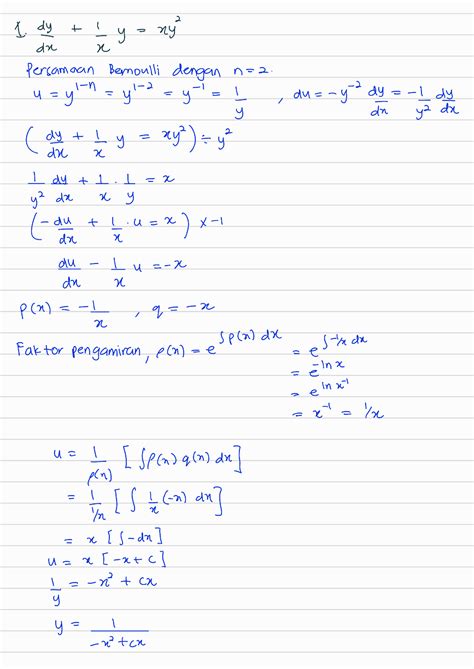 1. dy/dx + 1/x y = xy²
Persamaan Bernoulli dengan n=2.
u = y^(1-n) = y^(1-2) = y^(-1) = 1/y , du = -y^(-2) dy/dx = -1/y² dy/dx
(dy/dx + 1/x y = xy²) ÷ y²
1/y² dy/dx + 1/x · 1/y = x
(-du/dx + 1/x · u = x) × -1
du/dx - 1/x u = -x
p(x) = -1/x , q = -x
Faktor pengamiran, ρ(x) = e^(∫p(x) dx) = e^(∫-1/x dx)
= e^(-ln x)
= e^(ln x^(-1))
= x^(-1) = 1/x
u = 1/ρ(x) [∫ρ(x) q(x) dx]
= 1/(1/x) [∫ 1/x (-x) dx]
= x [∫-dx]
u = x [-x + c]
1/y = -x² + cx
y = 1/(-x² + cx)